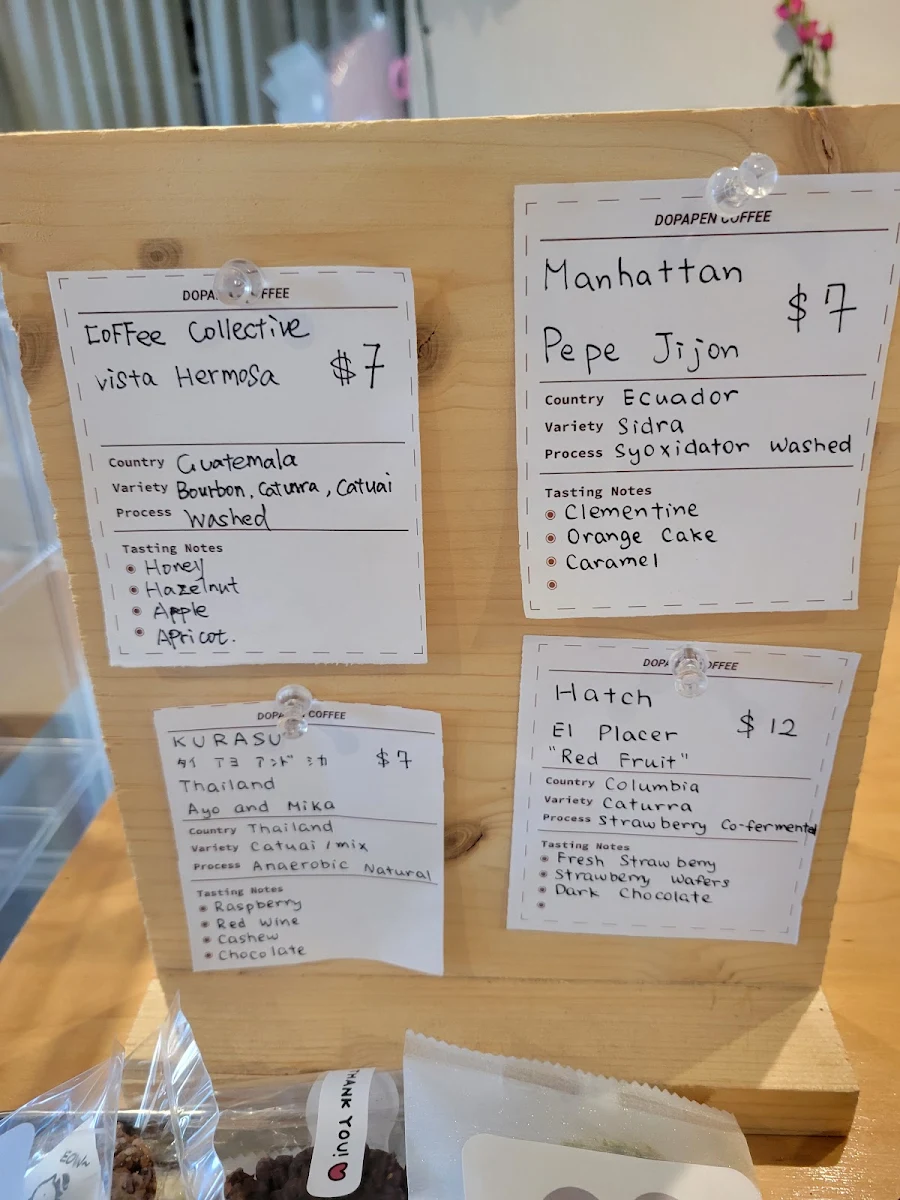 COFFEE
Coffee Collective
Vista Hermosa
$7
Country Guatemala
Variety Bourbon, Caturra, Catuai
Process Washed
Tasting Notes
Honey
Hazelnut
Apple
Apricot.
DOPAPEN COFFEE
Manhattan
$7
Pepe Jijon
Country Ecuador
Variety Sidra
Process Syoxidator Washed
Tasting Notes
Clementine
Orange Cake
Caramel
COFFEE
KURASU
タイ アヨ アンド ミカ
$7
Thailand
Ayo and Mika
Country Thailand
Variety Catuai / mix
Process Anaerobic Natural
Tasting Notes
Raspberry
Red Wine
Cashew
Chocolate
COFFEE
Hatch
$12
El Placer
"Red Fruit"
Country Columbia
Variety Caturra
Process Strawberry Co-fermented
Tasting Notes
Fresh Strawberry
Strawberry Wafers
Dark Chocolate
THANK YOU!